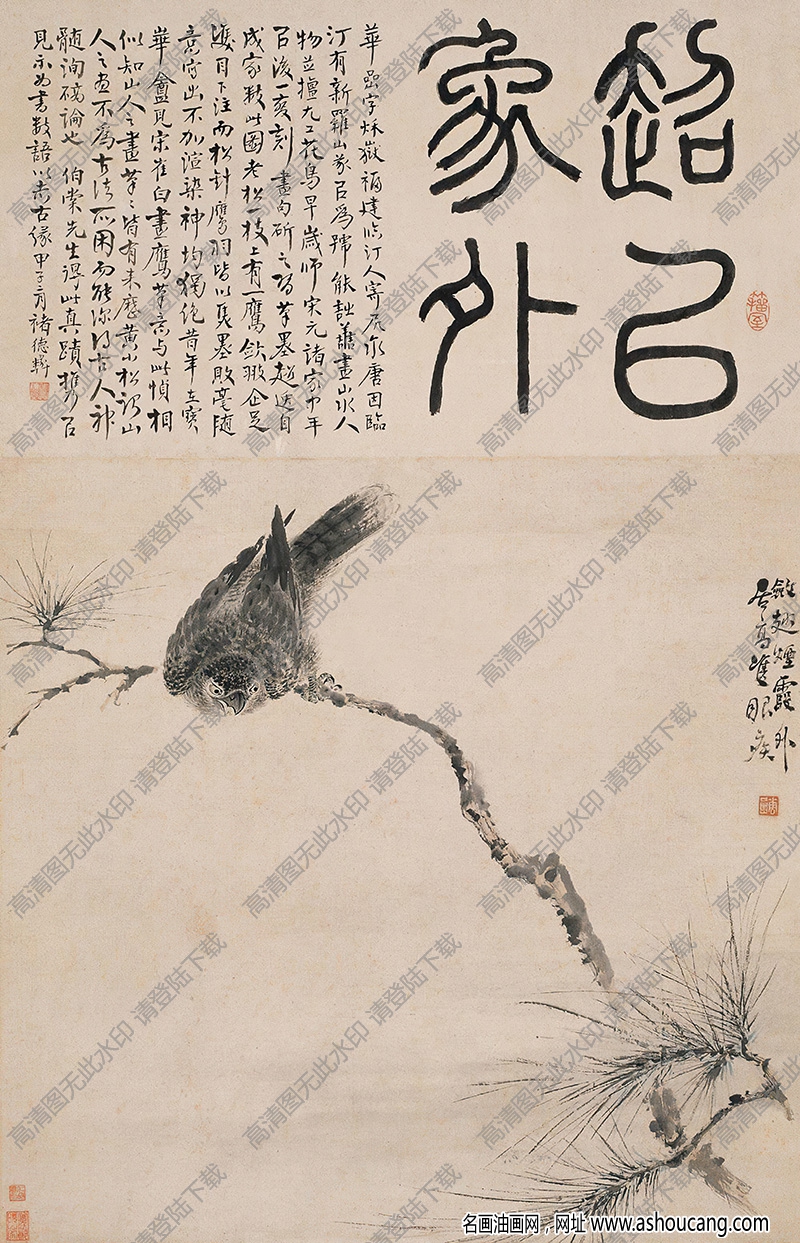 超以
象外
華嵒字秋嶽福建臨汀人寄尻泉唐因臨
汀有新羅山遂㠯爲號能詩善畫山水人
物並擅尤工花鳥早歲師宋元諸家中年
㠯後一變刻畫句斫之習筆墨超逸自
成家數此圖老松一枝上有一鷹斂翮企足
雙目下注而松針鷹羽皆以焦墨敗毫隨
意寫出不加渲染神均獨絕昔年在寶
華盦見宋崔白畫鷹筆意与此幀相
似知山人之畫筆筆皆有來歷黃小松謂山
人之畫不爲古法所困而能深得古人神
髓洵碻論也 伯棠先生得此真蹟攜㠯
見示爲書數語以志古緣甲子二月褚德彝
斂翅煙霞外
居高隻眼疾
高清图无此水印 请登陆下载
名画油画网，网址 www.ashoucang.com